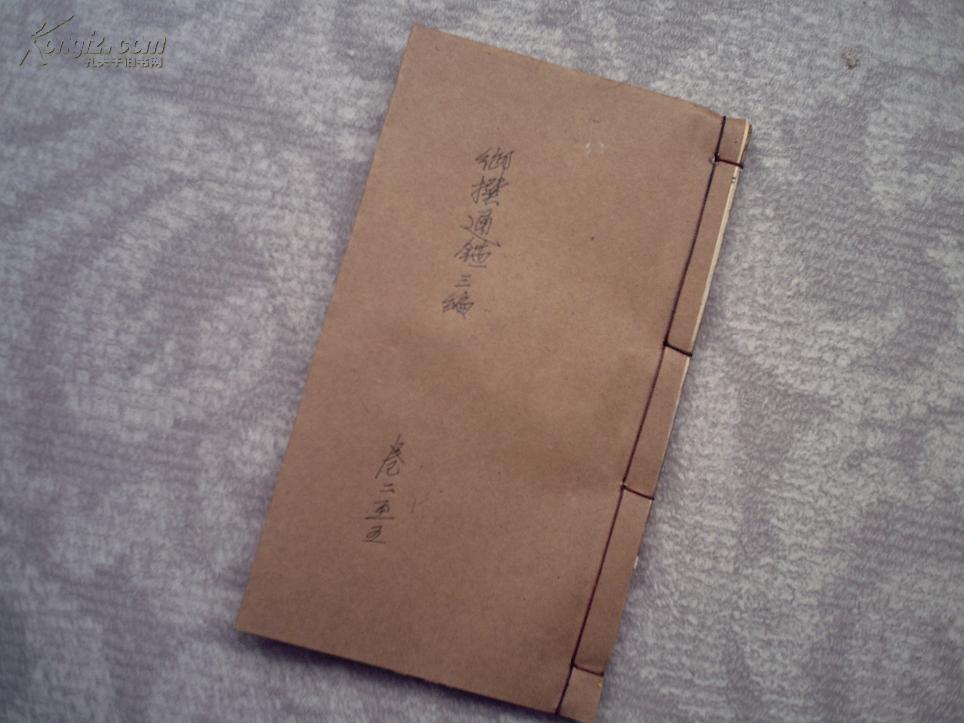 Kongfz.com
孔夫子旧书网
御撰通鑑三编
卷二至五